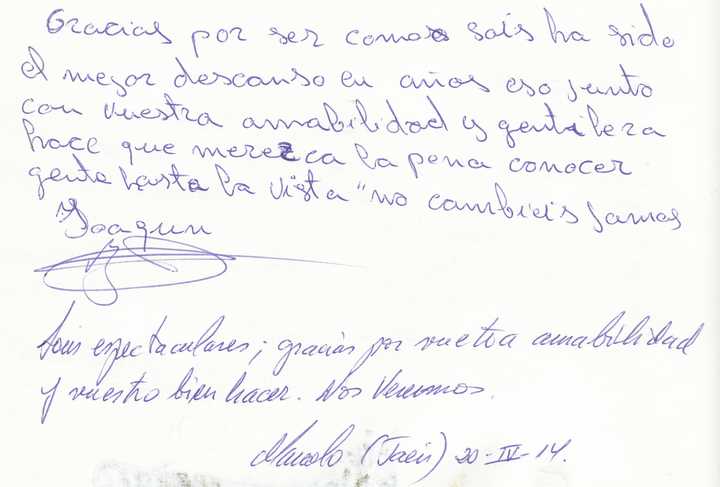 Gracias por ser como sois ha sido
el mejor descanso en años eso junto
con vuestra amabilidad y gentileza
hace que merezca la pena conocer
gente hasta la vista "no cambieis jamas
Joaquin
Sois espectaculares; gracias por vuestra amabilidad
y vuestro bien hacer. Nos Veremos.
Manolo (Jaén) 20-IV-14.